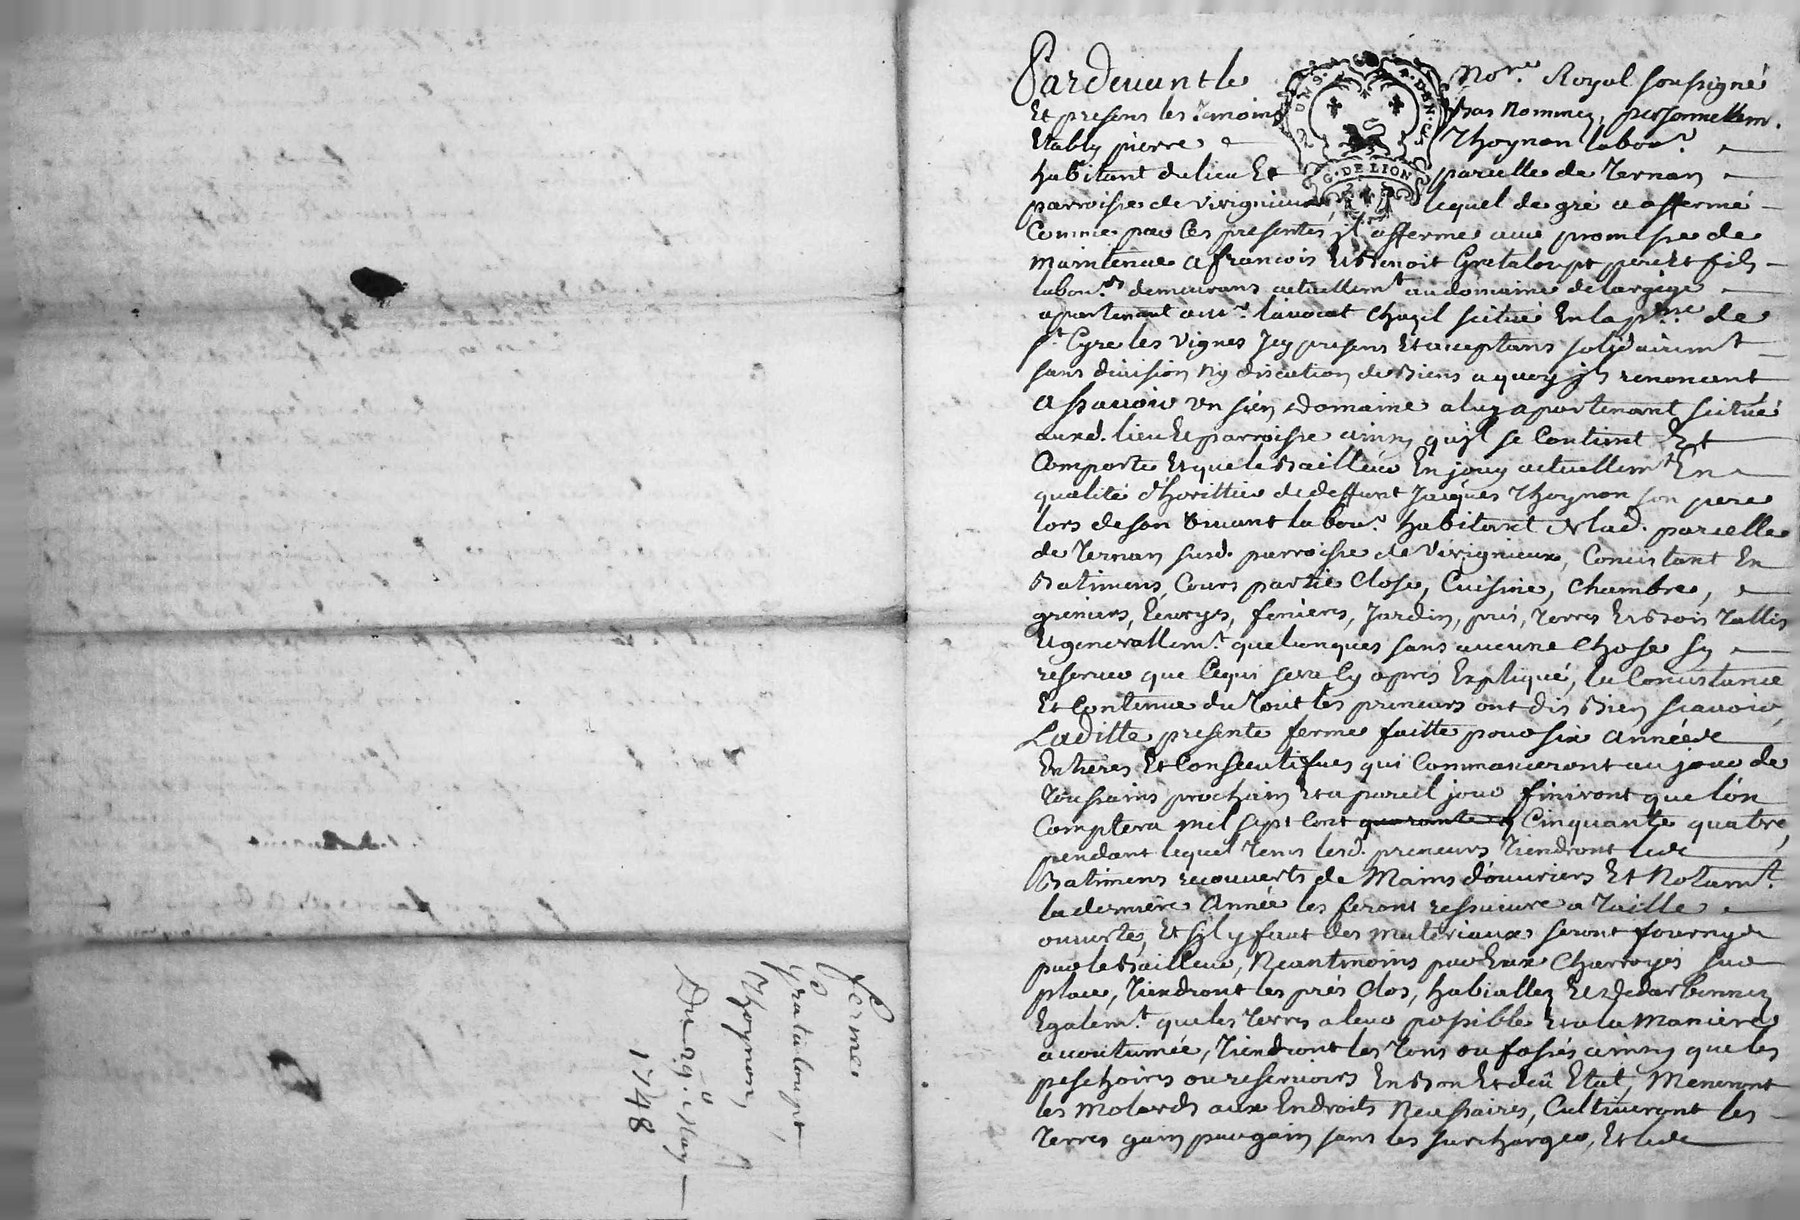 ferme
Grataloupt,
Thoynon,
Du 29.e May
1748
Pardevant le Nore. Royal soussigné
Et presens les temoins Bas Nommez, personnellem.
Etably pierre Thoynon labour.
habitant du lieu Et parcelle de Ternan
parroisse de Virignieux, lequel de gré a affermé
Comme par Ces presentes il afferme avec promesse de
Maintenue a francois Et Benoit Grataloupt pere Et fils
labour.rs demeurans actuellemt. au domaine de
apartenant a mr. l'avocat Chazil scitué En la psse. de
st. Cyre les Vignes Jcy presens Et acceptans solidairemt.
sans division Ny discution de Biens a quoy ils renoncent
Assavoir Un sien Domaine a luy apartenant scitué
auxd. lieu Et parroisse ainsy qu'il se Contient Et
Comporte Et que le Bailleur En jouy actuellemt. En
qualité d'heritier de deffunt Jacques Thoynon son pere
lors de son Vivant labour. habitant de lad. parcelle
de Ternan susd. parroisse de Virignieux, Consistant En
Batimens, Cours partie Close, Cuisine, Chambre,
greniers, Ecuryes, fenieres, Jardin, prés, Terres Et Bois Tallis
Et generallemt. quelconques sans aucune Chose sy
reserver que Cequi sera Cy aprés Expliqué, la Consistance
Et Contenue du Tout les preneurs ont dis Bien scavoir,
Laditte presente ferme faitte pour six années
Entieres Et Consecutifves qui Commanceront au jour de
Toussains prochain Et a pareil jour finiront que l'on
Comptera Mil sept Cent quarante Cinquante quatre,
pendant lequel Tems lesd. preneurs Tiendront les
Batimens recouverts de Mains d'ouvriers Et Notamt.
la derniere Année les feront ressuivre a Taille
ouverte, Et S'il y faut des Materiaux seront fournys
par le Bailleur, Neantmoins par Eux Charroyés sur
place, Tiendront les prés Clos, habiallez Et Dedarbonnez
Egalemt. que les Terres a leur possible Et a la Maniere
acoutumée, Tiendront les Tons ou fossés ainsy que les
peschoires ou reservoirs En Bon Et deû Etat, Meneront
les Molards aux Endroits Necessaires, Cultiveront les
Terres gain par gain sans les surcharger, Et les